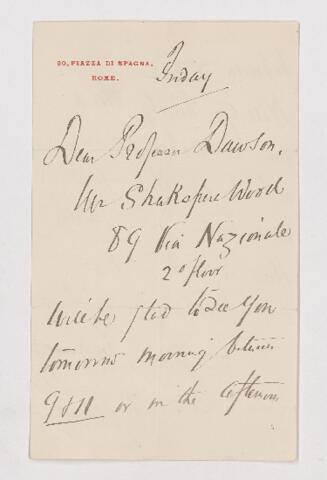 20, PIAZZA DI SPAGNA,
ROME.
Friday
Dear Professor Dawson,
Mr Shakspere Wood
89 Via Nazionale
2º floor
will be glad to see you
tomorrow morning between
9 & 11 or in the afternoon